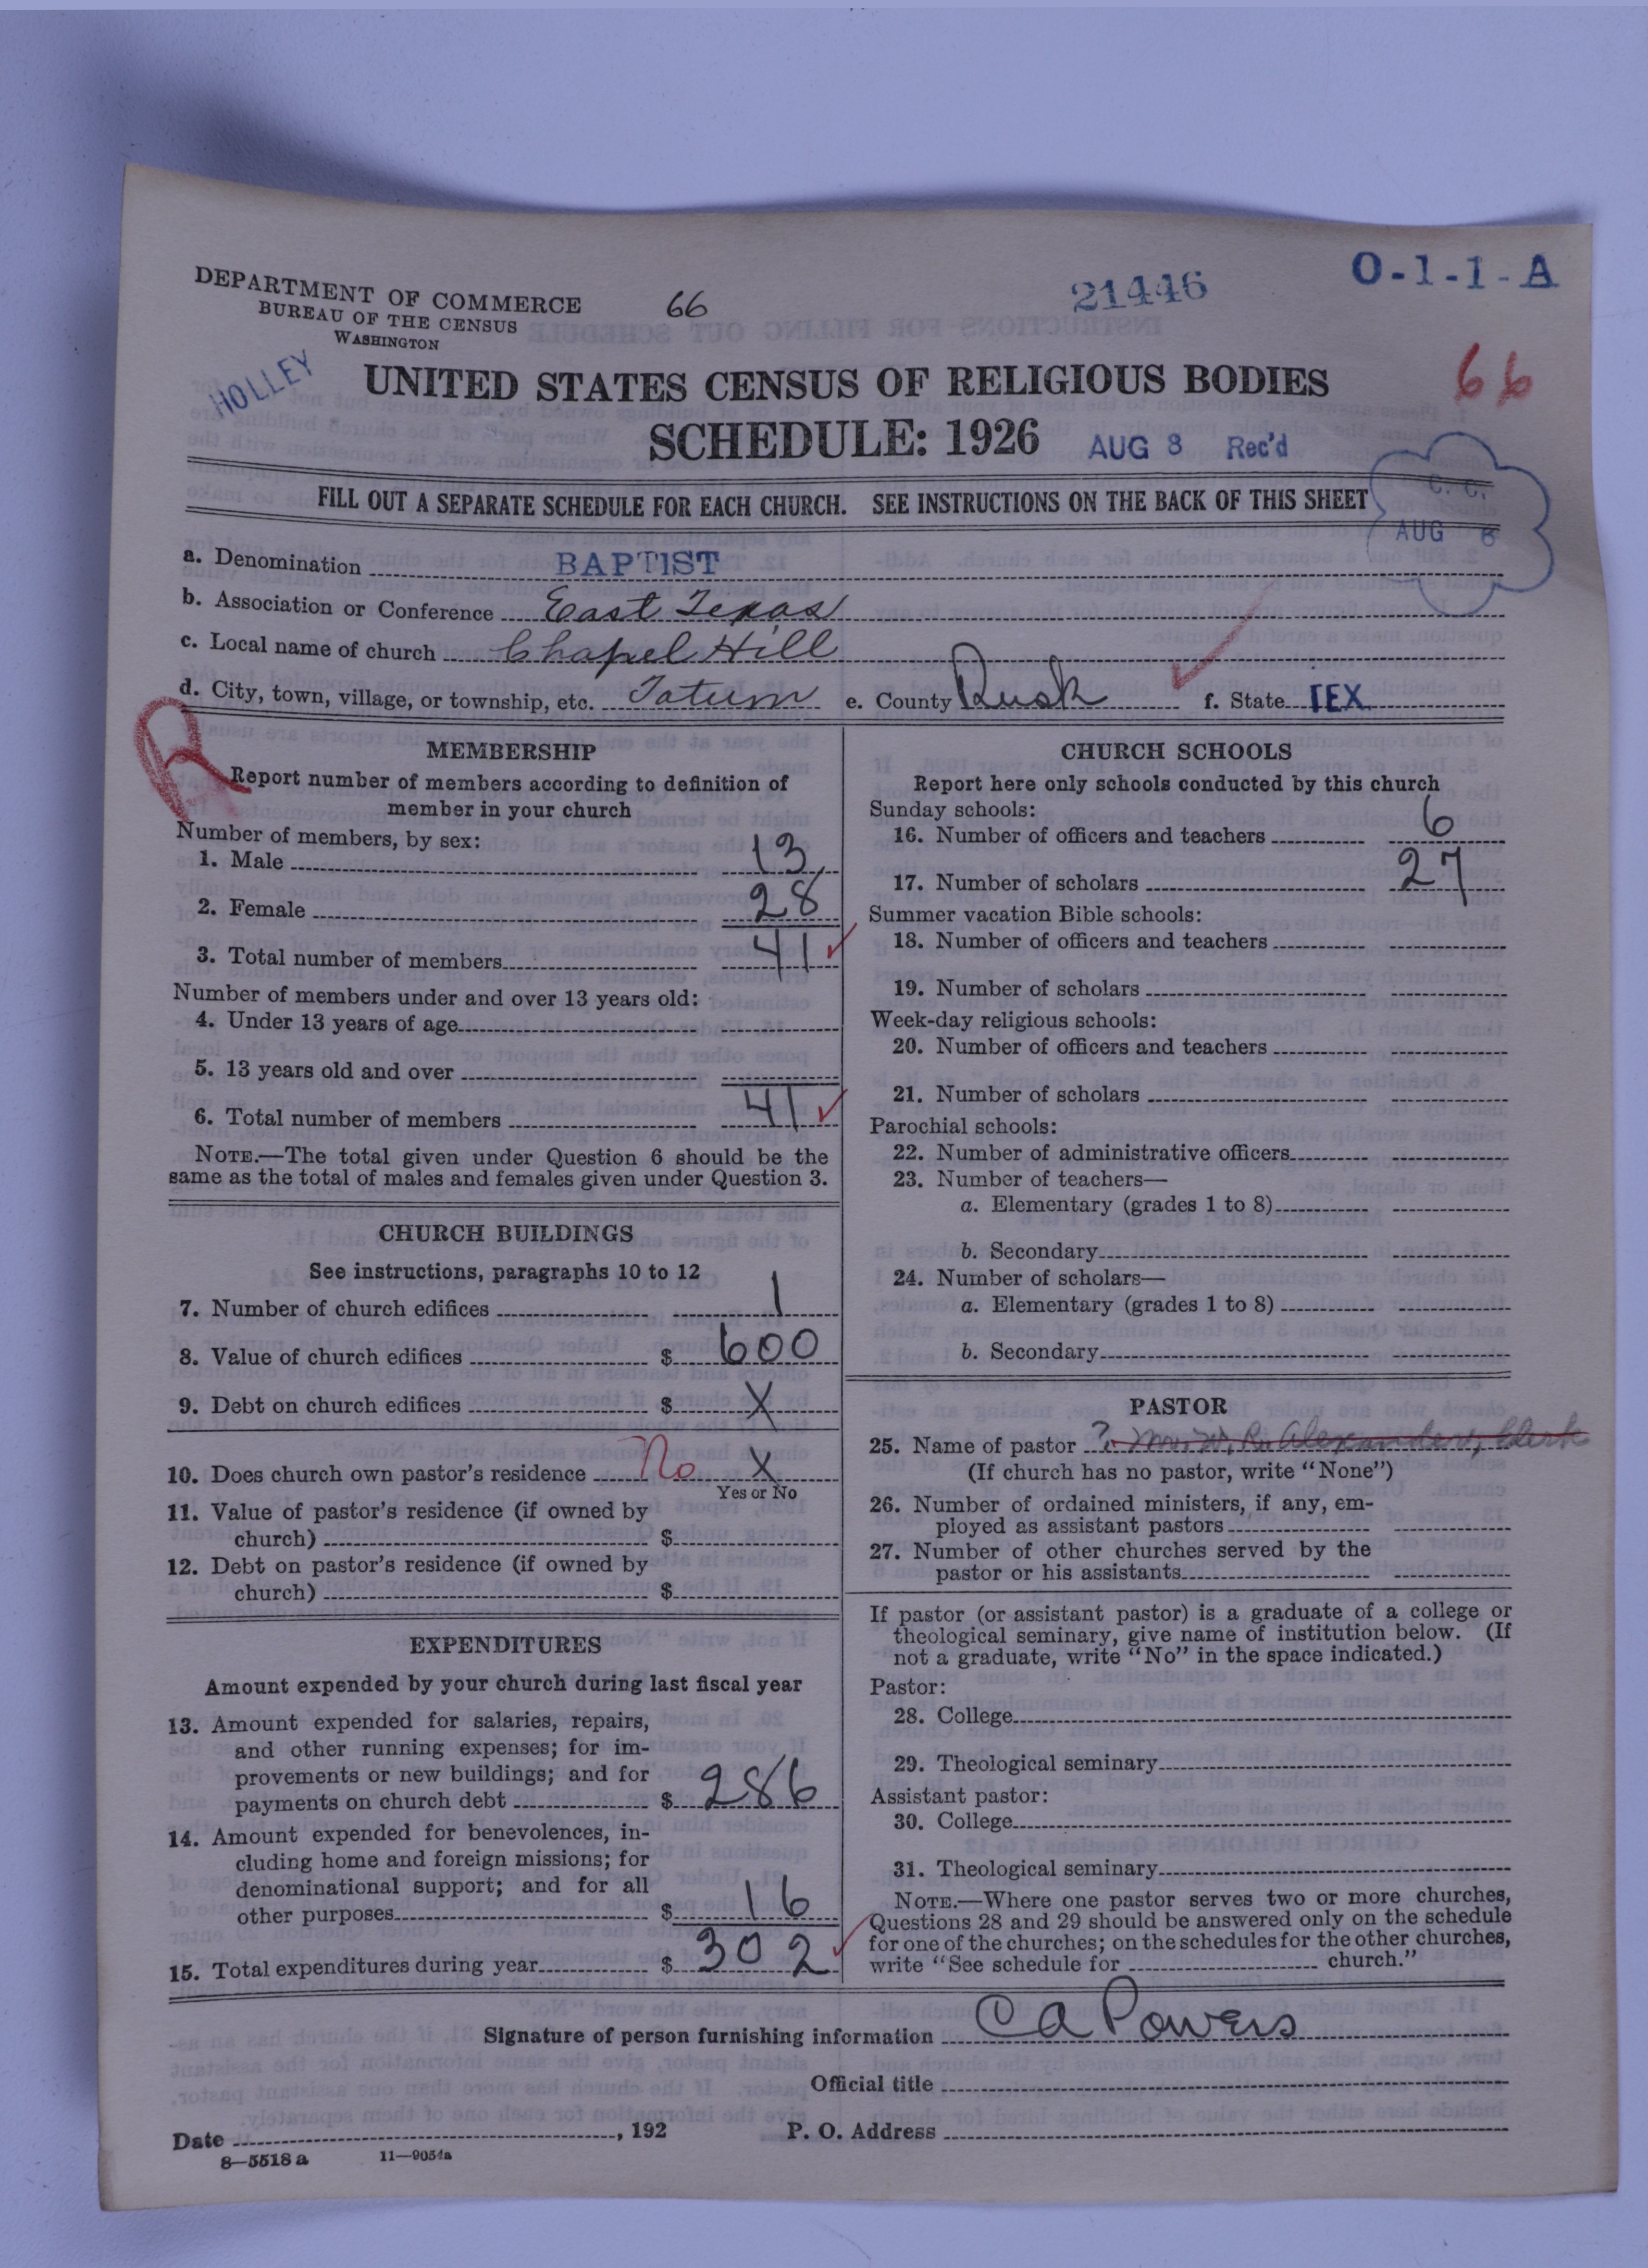 DEPARTMENT OF COMMERCE
BUREAU OF THE CENSUS
WASHINGTON
66
21446
O-1-1-A
HOLLEY
66
UNITED STATES CENSUS OF RELIGIOUS BODIES
SCHEDULE: 1926
AUG 8 Rec'd
FILL OUT A SEPARATE SCHEDULE FOR EACH CHURCH. SEE INSTRUCTIONS ON THE BACK OF THIS SHEET
C. C.
AUG 6
a. Denomination BAPTIST
b. Association or Conference East Texas
c. Local name of church Chapel Hill
d. City, town, village, or township, etc. Tatum e. County Rusk f. State TEX
R
MEMBERSHIP
Report number of members according to definition of
member in your church
Number of members, by sex:
1. Male 13
2. Female 28
3. Total number of members 41
Number of members under and over 13 years old:
4. Under 13 years of age
5. 13 years old and over
6. Total number of members 41
NOTE.—The total given under Question 6 should be the
same as the total of males and females given under Question 3.
CHURCH BUILDINGS
See instructions, paragraphs 10 to 12
7. Number of church edifices 1
8. Value of church edifices $ 600
9. Debt on church edifices $ X
10. Does church own pastor's residence No X
Yes or No
11. Value of pastor's residence (if owned by
church) $
12. Debt on pastor's residence (if owned by
church) $
EXPENDITURES
Amount expended by your church during last fiscal year
13. Amount expended for salaries, repairs,
and other running expenses; for im-
provements or new buildings; and for
payments on church debt $ 286
14. Amount expended for benevolences, in-
cluding home and foreign missions; for
denominational support; and for all
other purposes $ 16
15. Total expenditures during year $ 302
CHURCH SCHOOLS
Report here only schools conducted by this church
Sunday schools:
16. Number of officers and teachers 6
17. Number of scholars 27
Summer vacation Bible schools:
18. Number of officers and teachers
19. Number of scholars
Week-day religious schools:
20. Number of officers and teachers
21. Number of scholars
Parochial schools:
22. Number of administrative officers
23. Number of teachers—
a. Elementary (grades 1 to 8)
b. Secondary
24. Number of scholars—
a. Elementary (grades 1 to 8)
b. Secondary
PASTOR
25. Name of pastor ? Alexander, Clerk
(If church has no pastor, write "None")
26. Number of ordained ministers, if any, em-
ployed as assistant pastors
27. Number of other churches served by the
pastor or his assistants
If pastor (or assistant pastor) is a graduate of a college or
theological seminary, give name of institution below. (If
not a graduate, write "No" in the space indicated.)
Pastor:
28. College
29. Theological seminary
Assistant pastor:
30. College
31. Theological seminary
NOTE.—Where one pastor serves two or more churches,
Questions 28 and 29 should be answered only on the schedule
for one of the churches; on the schedules for the other churches,
write "See schedule for church."
Signature of person furnishing information C A Powers
Official title
Date , 192 P. O. Address
8—5518 a 11—9054a